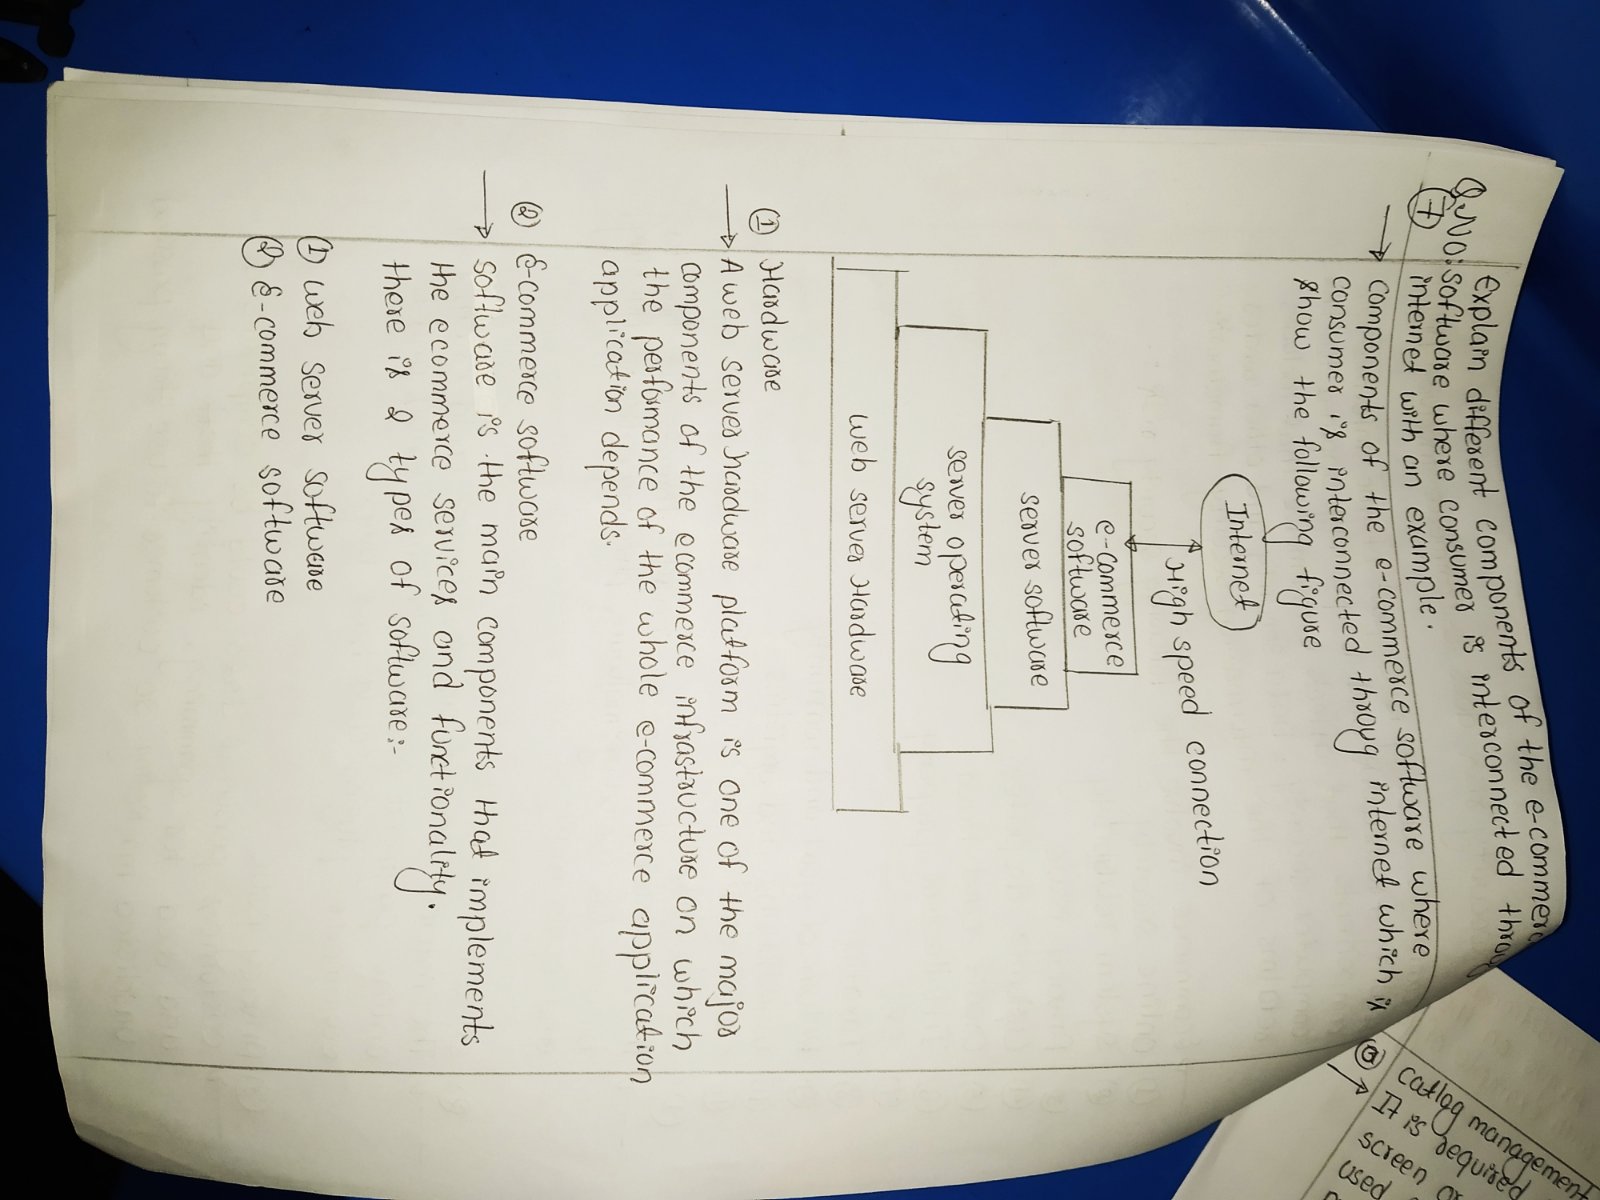 Explain different components of the e-commerc
Q.NO: software where consumer is interconnected throu
7 internet with an example.
components of the e-commerce software where
consumer is interconnected throug internet which is
show the following figure
Internet
High speed connection
e-commerce
software
server software
server operating
system
web server Hardware
1 Hardware
A web server hardware platform is one of the major
components of the ecommerce infrastructure on which
the performance of the whole e-commerce application
application depends.
2 E-commerce software
software is the main components that implements
the ecommerce services and functionality.
there is 2 types of software:-
1 web server software
2 E-commerce software
catlog management
It is required
screen or
used